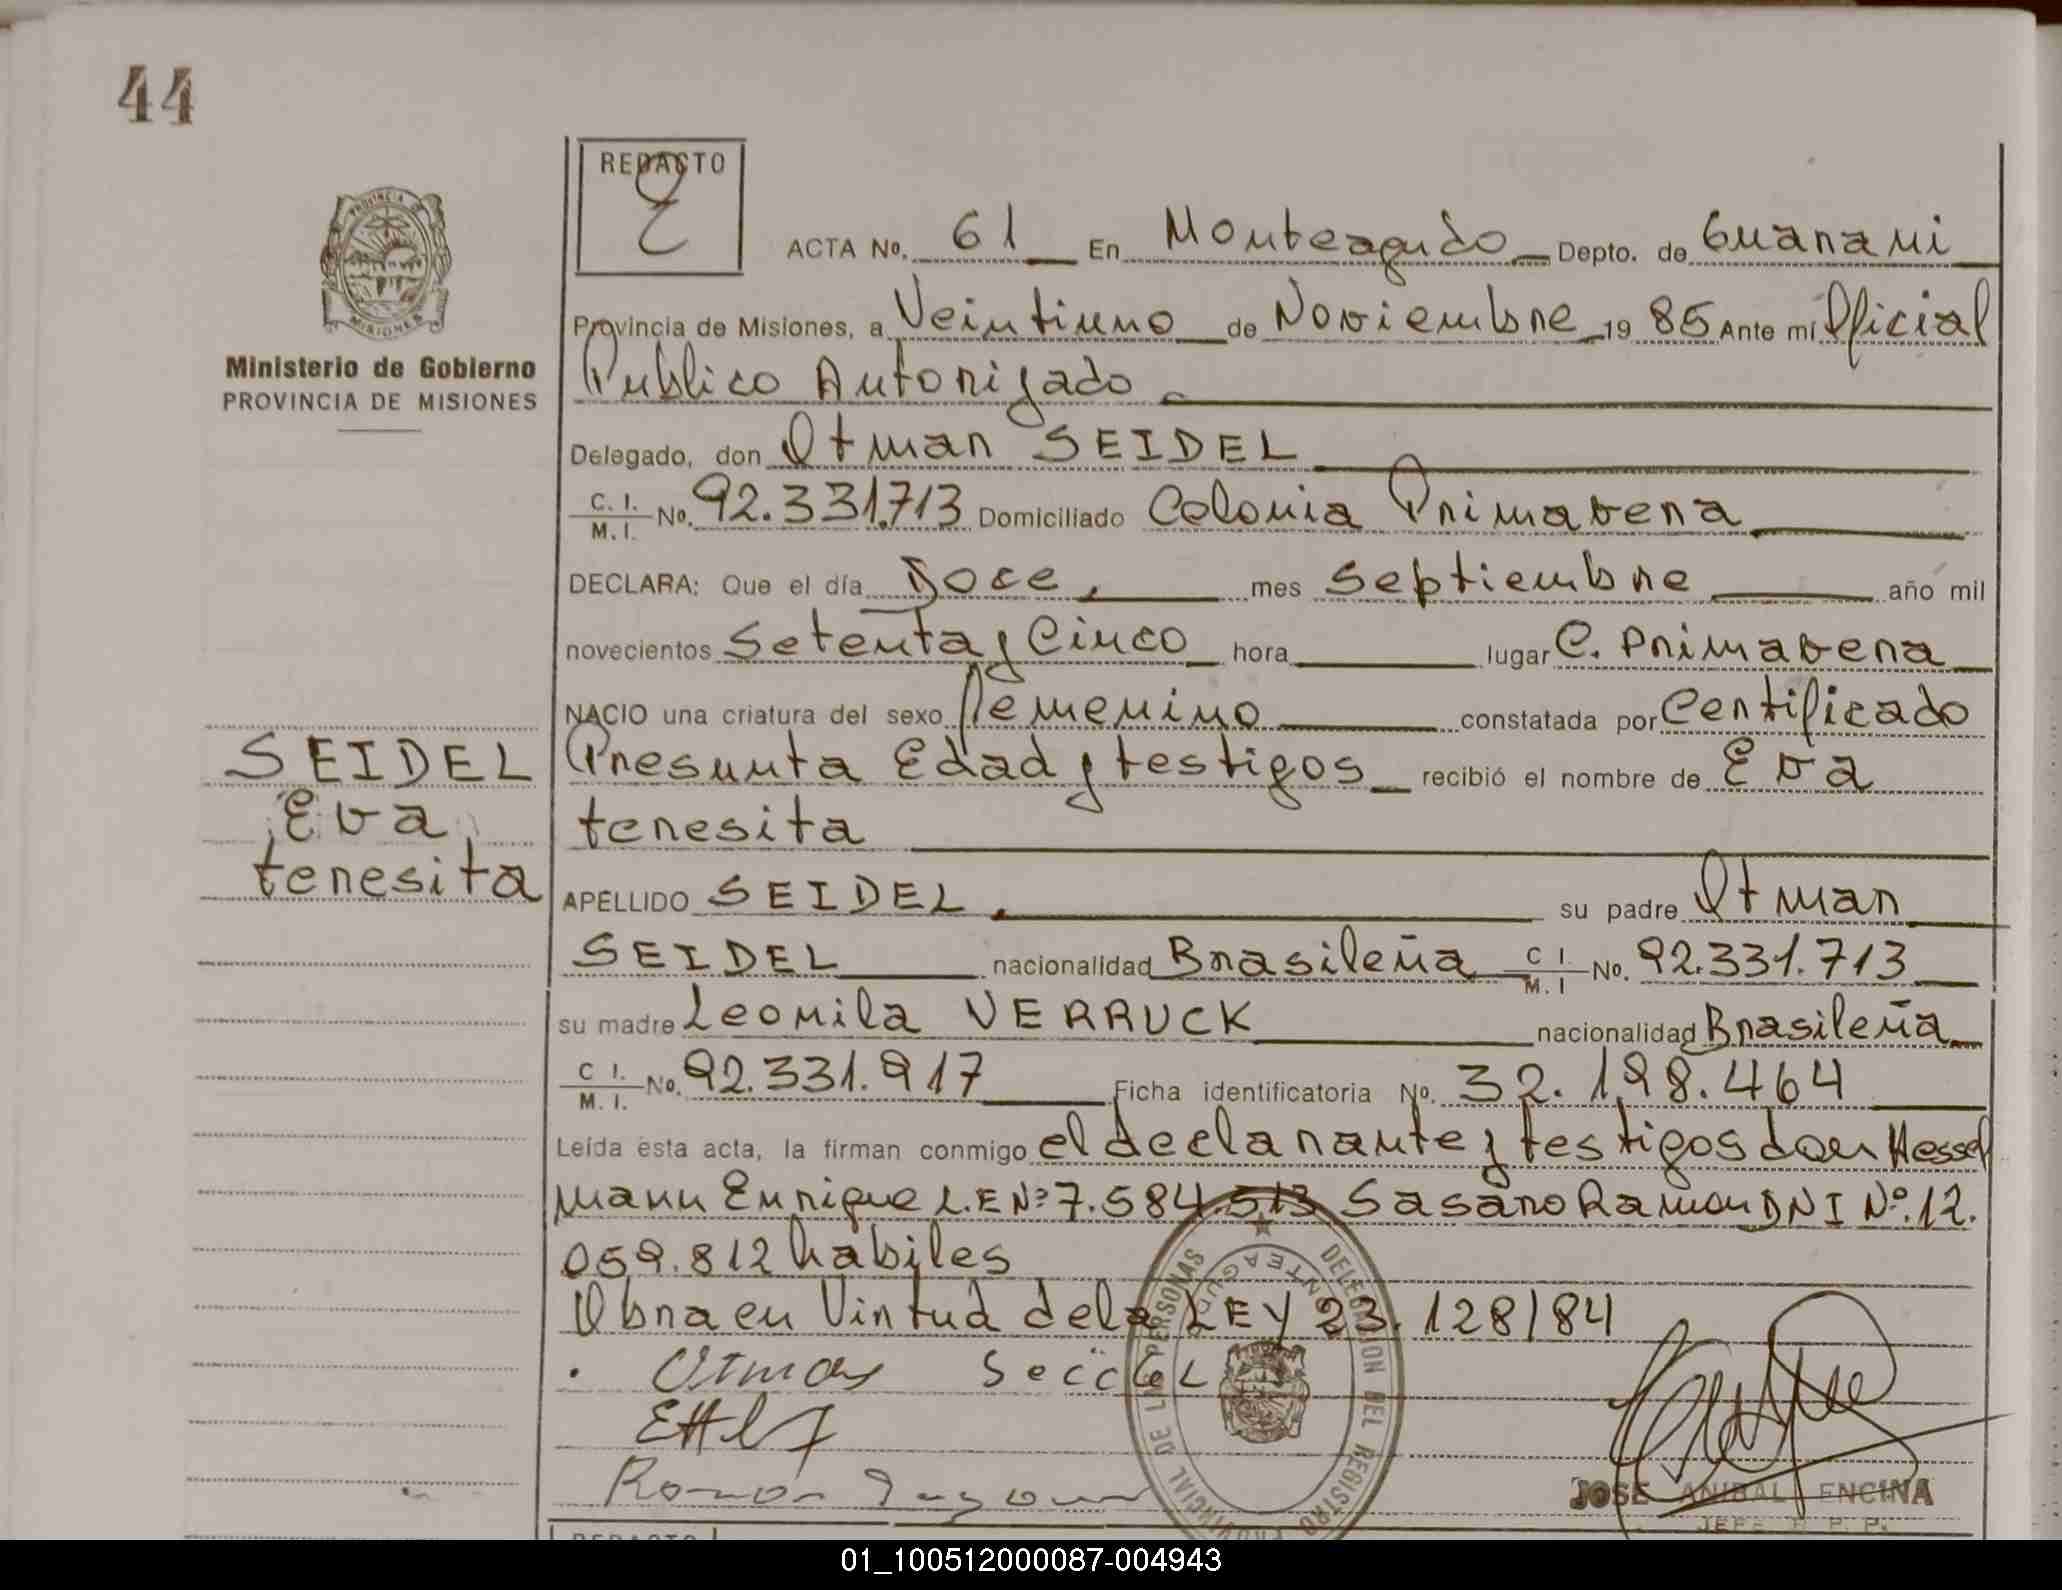 44
REDACTO
E
PROVINCIA DE
MISIONES
Ministerio de Gobierno
PROVINCIA DE MISIONES
ACTA No. 61 En Monteagudo Depto. de Guarani
Provincia de Misiones, a Veintiuno de Noviembre 1985 Ante mí Oficial
Publico Autorizado
Delegado, don Otmar SEIDEL
C. I. / M. I. No. 92.331.713 Domiciliado Colonia Primavera
DECLARA: Que el día Doce, mes Septiembre año mil
novecientos Setenta y Cinco hora lugar C. Primavera
NACIO una criatura del sexo femenino constatada por Certificado
Presunta Edad y testigos recibió el nombre de Eva
teresita
SEIDEL
Eva
teresita
APELLIDO SEIDEL. su padre Otmar
SEIDEL nacionalidad Brasileña C I. / M. I No. 92.331.713
su madre Leonila VERRUCK nacionalidad Brasileña
C I. / M. I. No. 92.331.917 Ficha identificatoria No. 32.198.464
Leída esta acta, la firman conmigo el declarante y testigos don Hessel
mann Enrique L.E Nº 7.584.513 Sasaro Ramon DNI Nº.12.
059.812 habiles
Obra en Virtud de la LEY 23.128/84
Otmar Seidel
DELEGACION DEL REGISTRO PROVINCIAL DE LAS PERSONAS
MONTEAGUDO
Ramon
JOSE ANIBAL ENCINA
JEFE R. P. P.
REDACTO
01_100512000087-004943